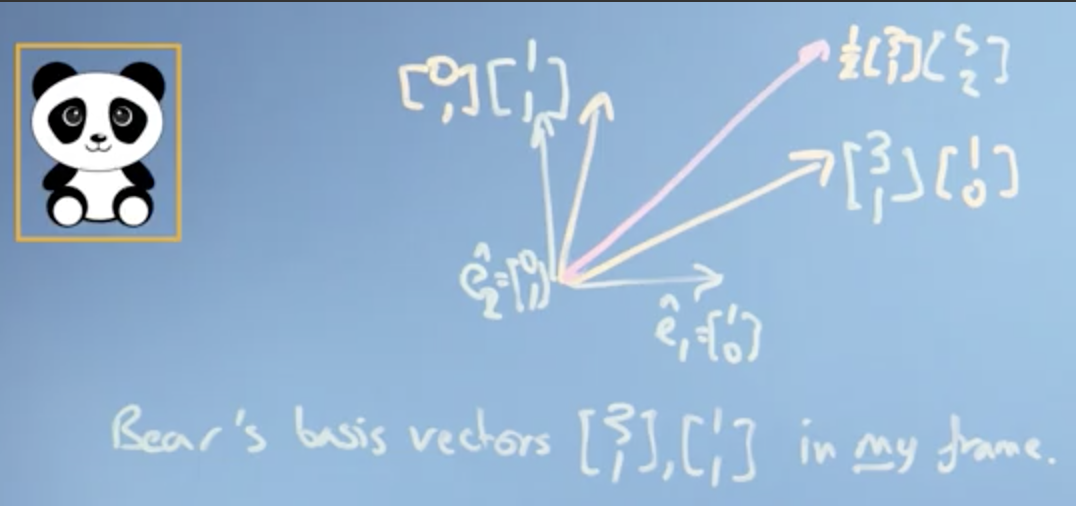 [0 1] [1 1]
½[3 1] [5 2]
[3 1] [1 0]
ê₂=[0 1]
ê₁=[1 0]
Bear's basis vectors [3 1], [1 1] in my frame.